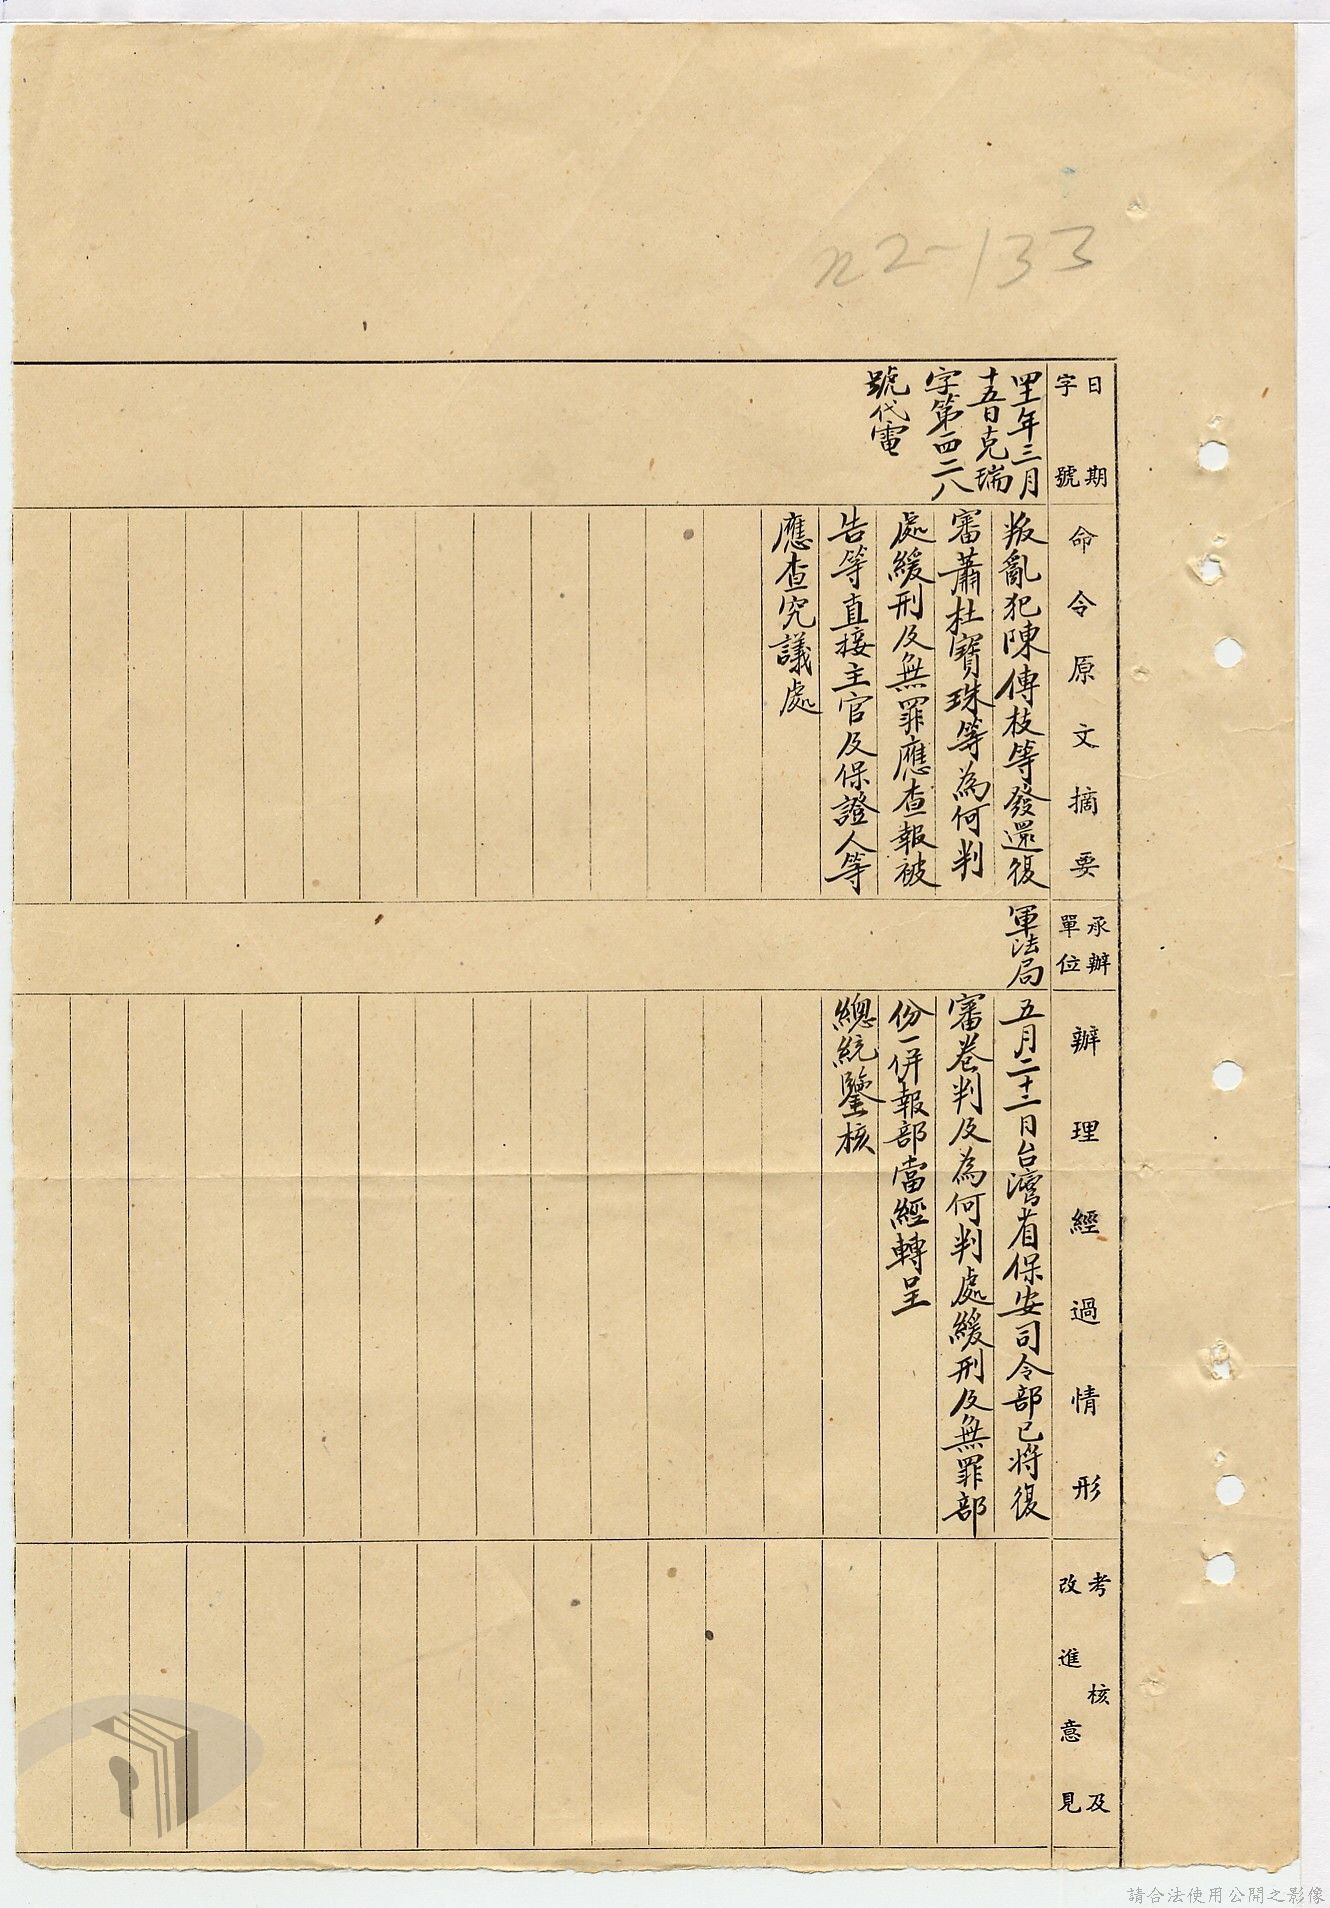 n2-133
日期
字號
命令原文摘要
承辦
單位
辦理經過情形
考核及
改進意見
四十一年三月
十五日克瑞
字第四二八
號代電
叛亂犯陳傳枝等發還復
審蕭杜寶珠等為何判
處緩刑及無罪應查報被
告等直接主官及保證人等
應查究議處
軍法局
五月二十二日台灣省保安司令部已將復
審卷判及為何判處緩刑及無罪部
份一併報部當經轉呈
總統鑒核
請合法使用公開之影像